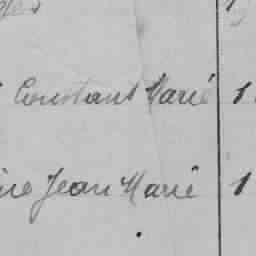 Constant Marie 1
Jean Marie 1